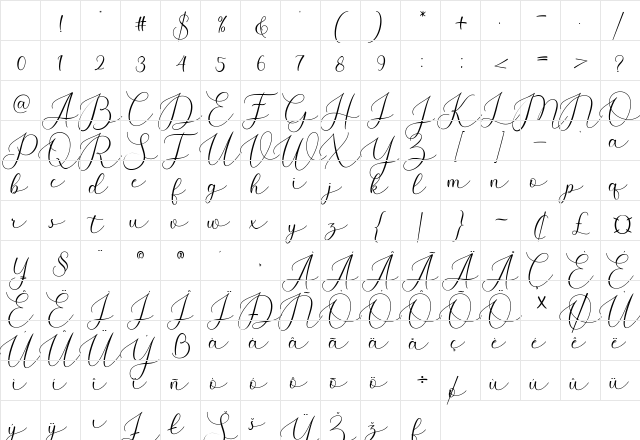 ! " # $ % & ' ( ) * + , - . /
0 1 2 3 4 5 6 7 8 9 : ; < = > ?
@ A B C D E F G H I J K L M N O
P Q R S T U V W X Y Z [ ] _ ` a
b c d e f g h i j k l m n o p q
r s t u v w x y z { | } ~ ¢ £ ¤
¥ § ¨ © ® À Á Â Ã Ä Å Ç È É
Ê Ë Ì Í Î Ï Ð Ñ Ò Ó Ô Õ Ö × Ø Ù
Ú Û Ü Ý ß à á â ã ä å ç è é ê ë
ì í î ï ñ ò ó ô õ ö ÷ ø ù ú û ü
ý ÿ ı Ł ł Š š Ÿ Ž ž ƒ